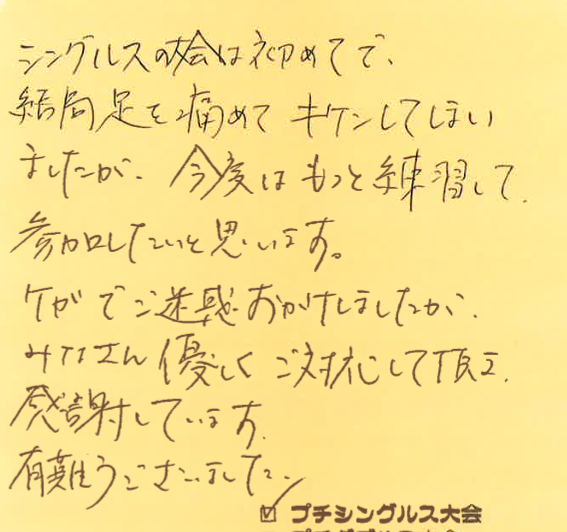 シングルスの大会は初めてで、
結局足を痛めてキケンしてしまい
ましたが、今度はもっと練習して、
参加したいと思います。
ケガでご迷惑おかけしましたが、
みなさん優しくご対応して頂き、
感謝しています。
有難うございました。
☑ プチシングルス大会